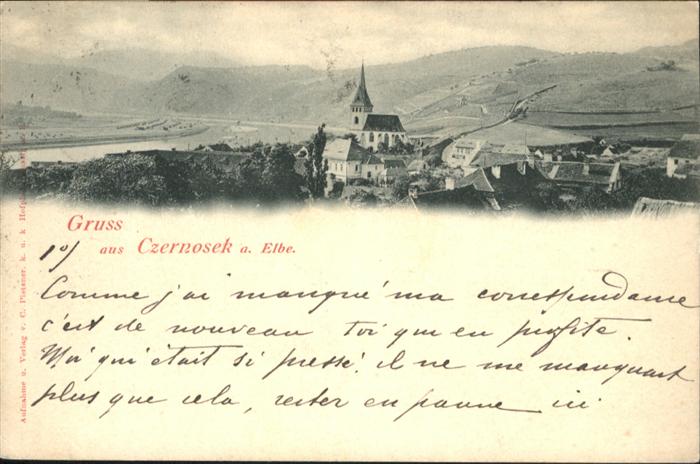 Gruss
aus Czernosek a. Elbe.
10/
Comme j'ai manqué ma correspondance
c'est de nouveau toi qui en profite.
Moi qui était si pressé, il ne me manquait
plus que cela, rester en panne ici
Aufnahme u. Verlag v. C. Pietzner, k. u. k Hof